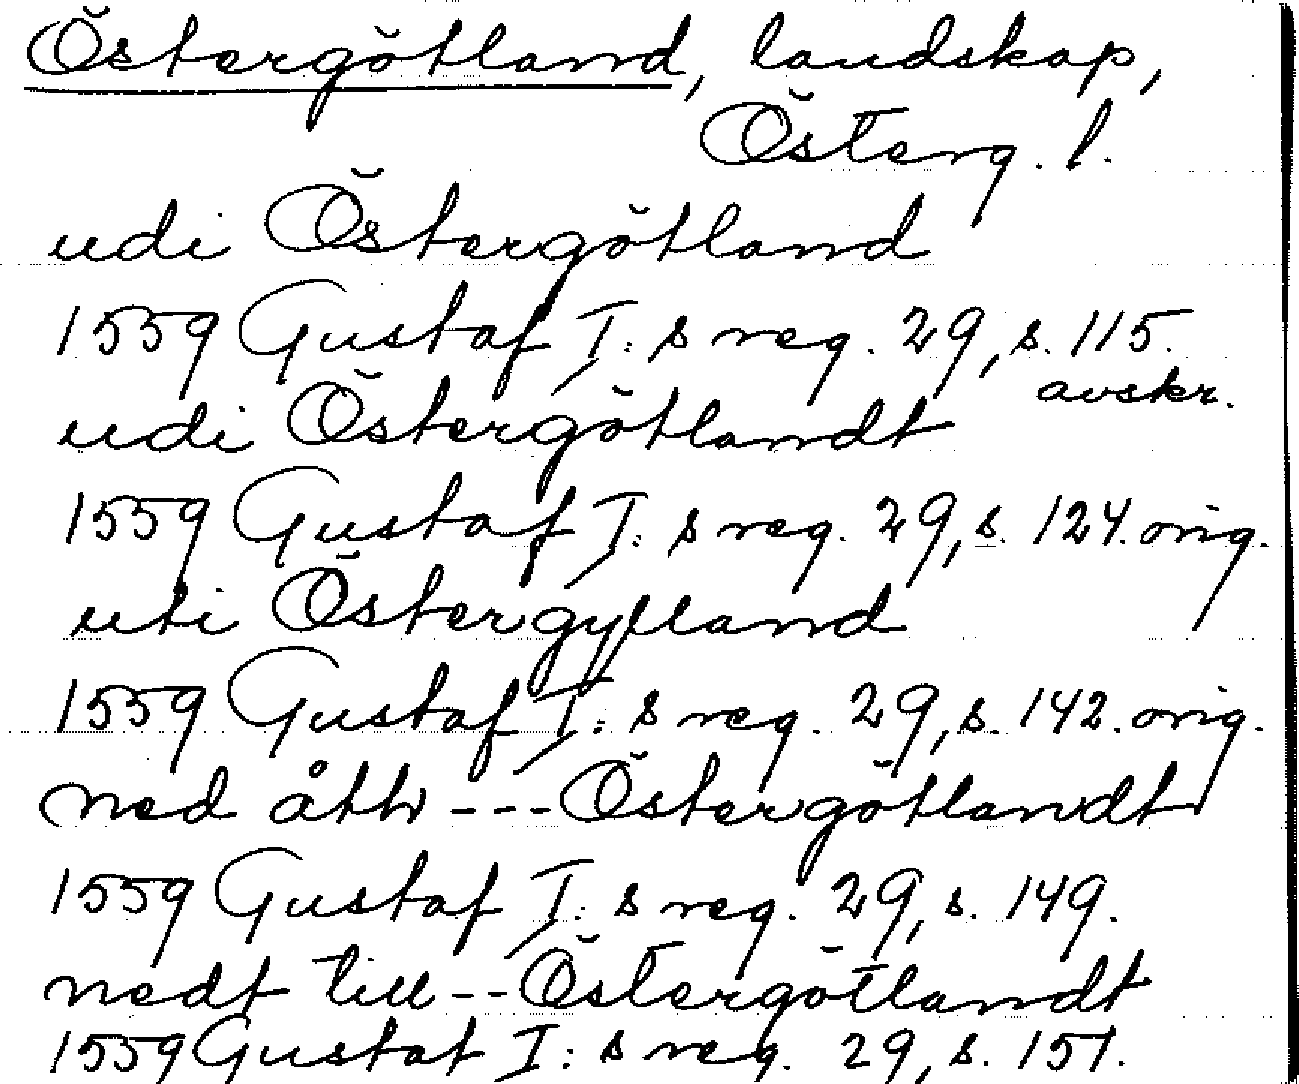 Östergötland, landskap,
Österg. l.
udi Östergötland
1559 Gustaf I:s reg. 29, s. 115.
avskr.
udi Östergötlandt
1559 Gustaf I:s reg. 29, s. 124. orig.
uti Östergylland
1559 Gustaf I:s reg. 29, s. 142. orig.
ned åth --- Östergötlandt
1559 Gustaf I:s reg. 29, s. 149.
nedt till -- Östergötlandt
1559 Gustaf I:s reg. 29, s. 151.